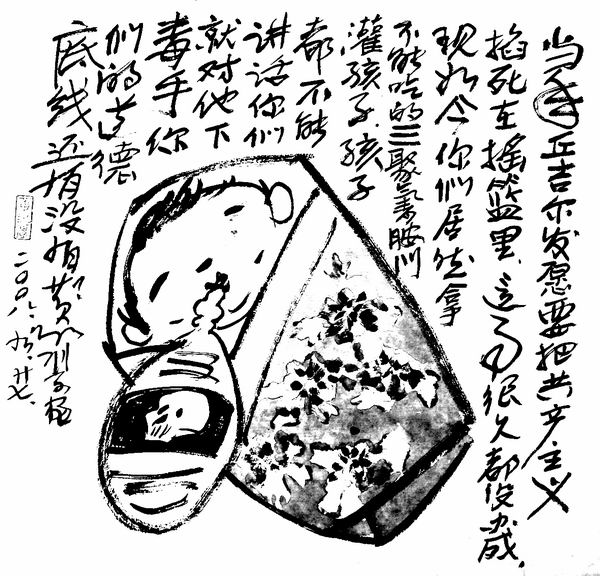 当年丘吉尔发愿要把共产主义
掐死在摇篮里，这很久都没办成，
现如今你们居然拿
不能吃的三聚氰胺
灌孩子，孩子
都不能
讲话你们
就对他下
毒手你
们的道德
底线还有没有？黄
二〇〇八.九.廿七.